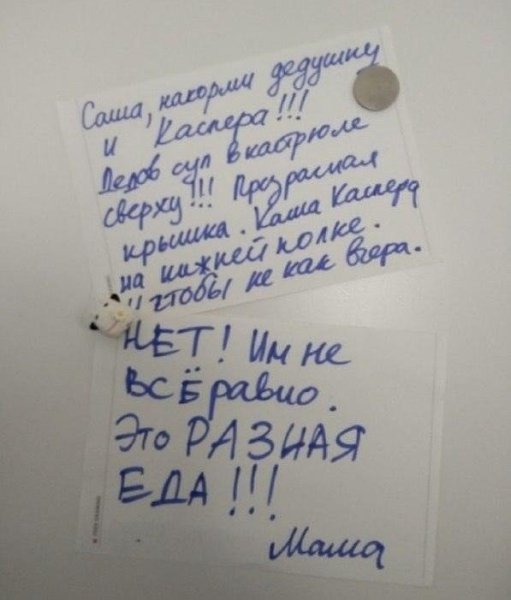 Саша, накорми дедушку
и Каспера!!!
Дедов суп в кастрюле
сверху!!! Прозрасная
крышка. Каша Каспера
на нижней полке.
И чтобы не как вчера.
НЕТ! Им не
ВСЁ равно.
Это РАЗНАЯ
ЕДА!!!
Мама